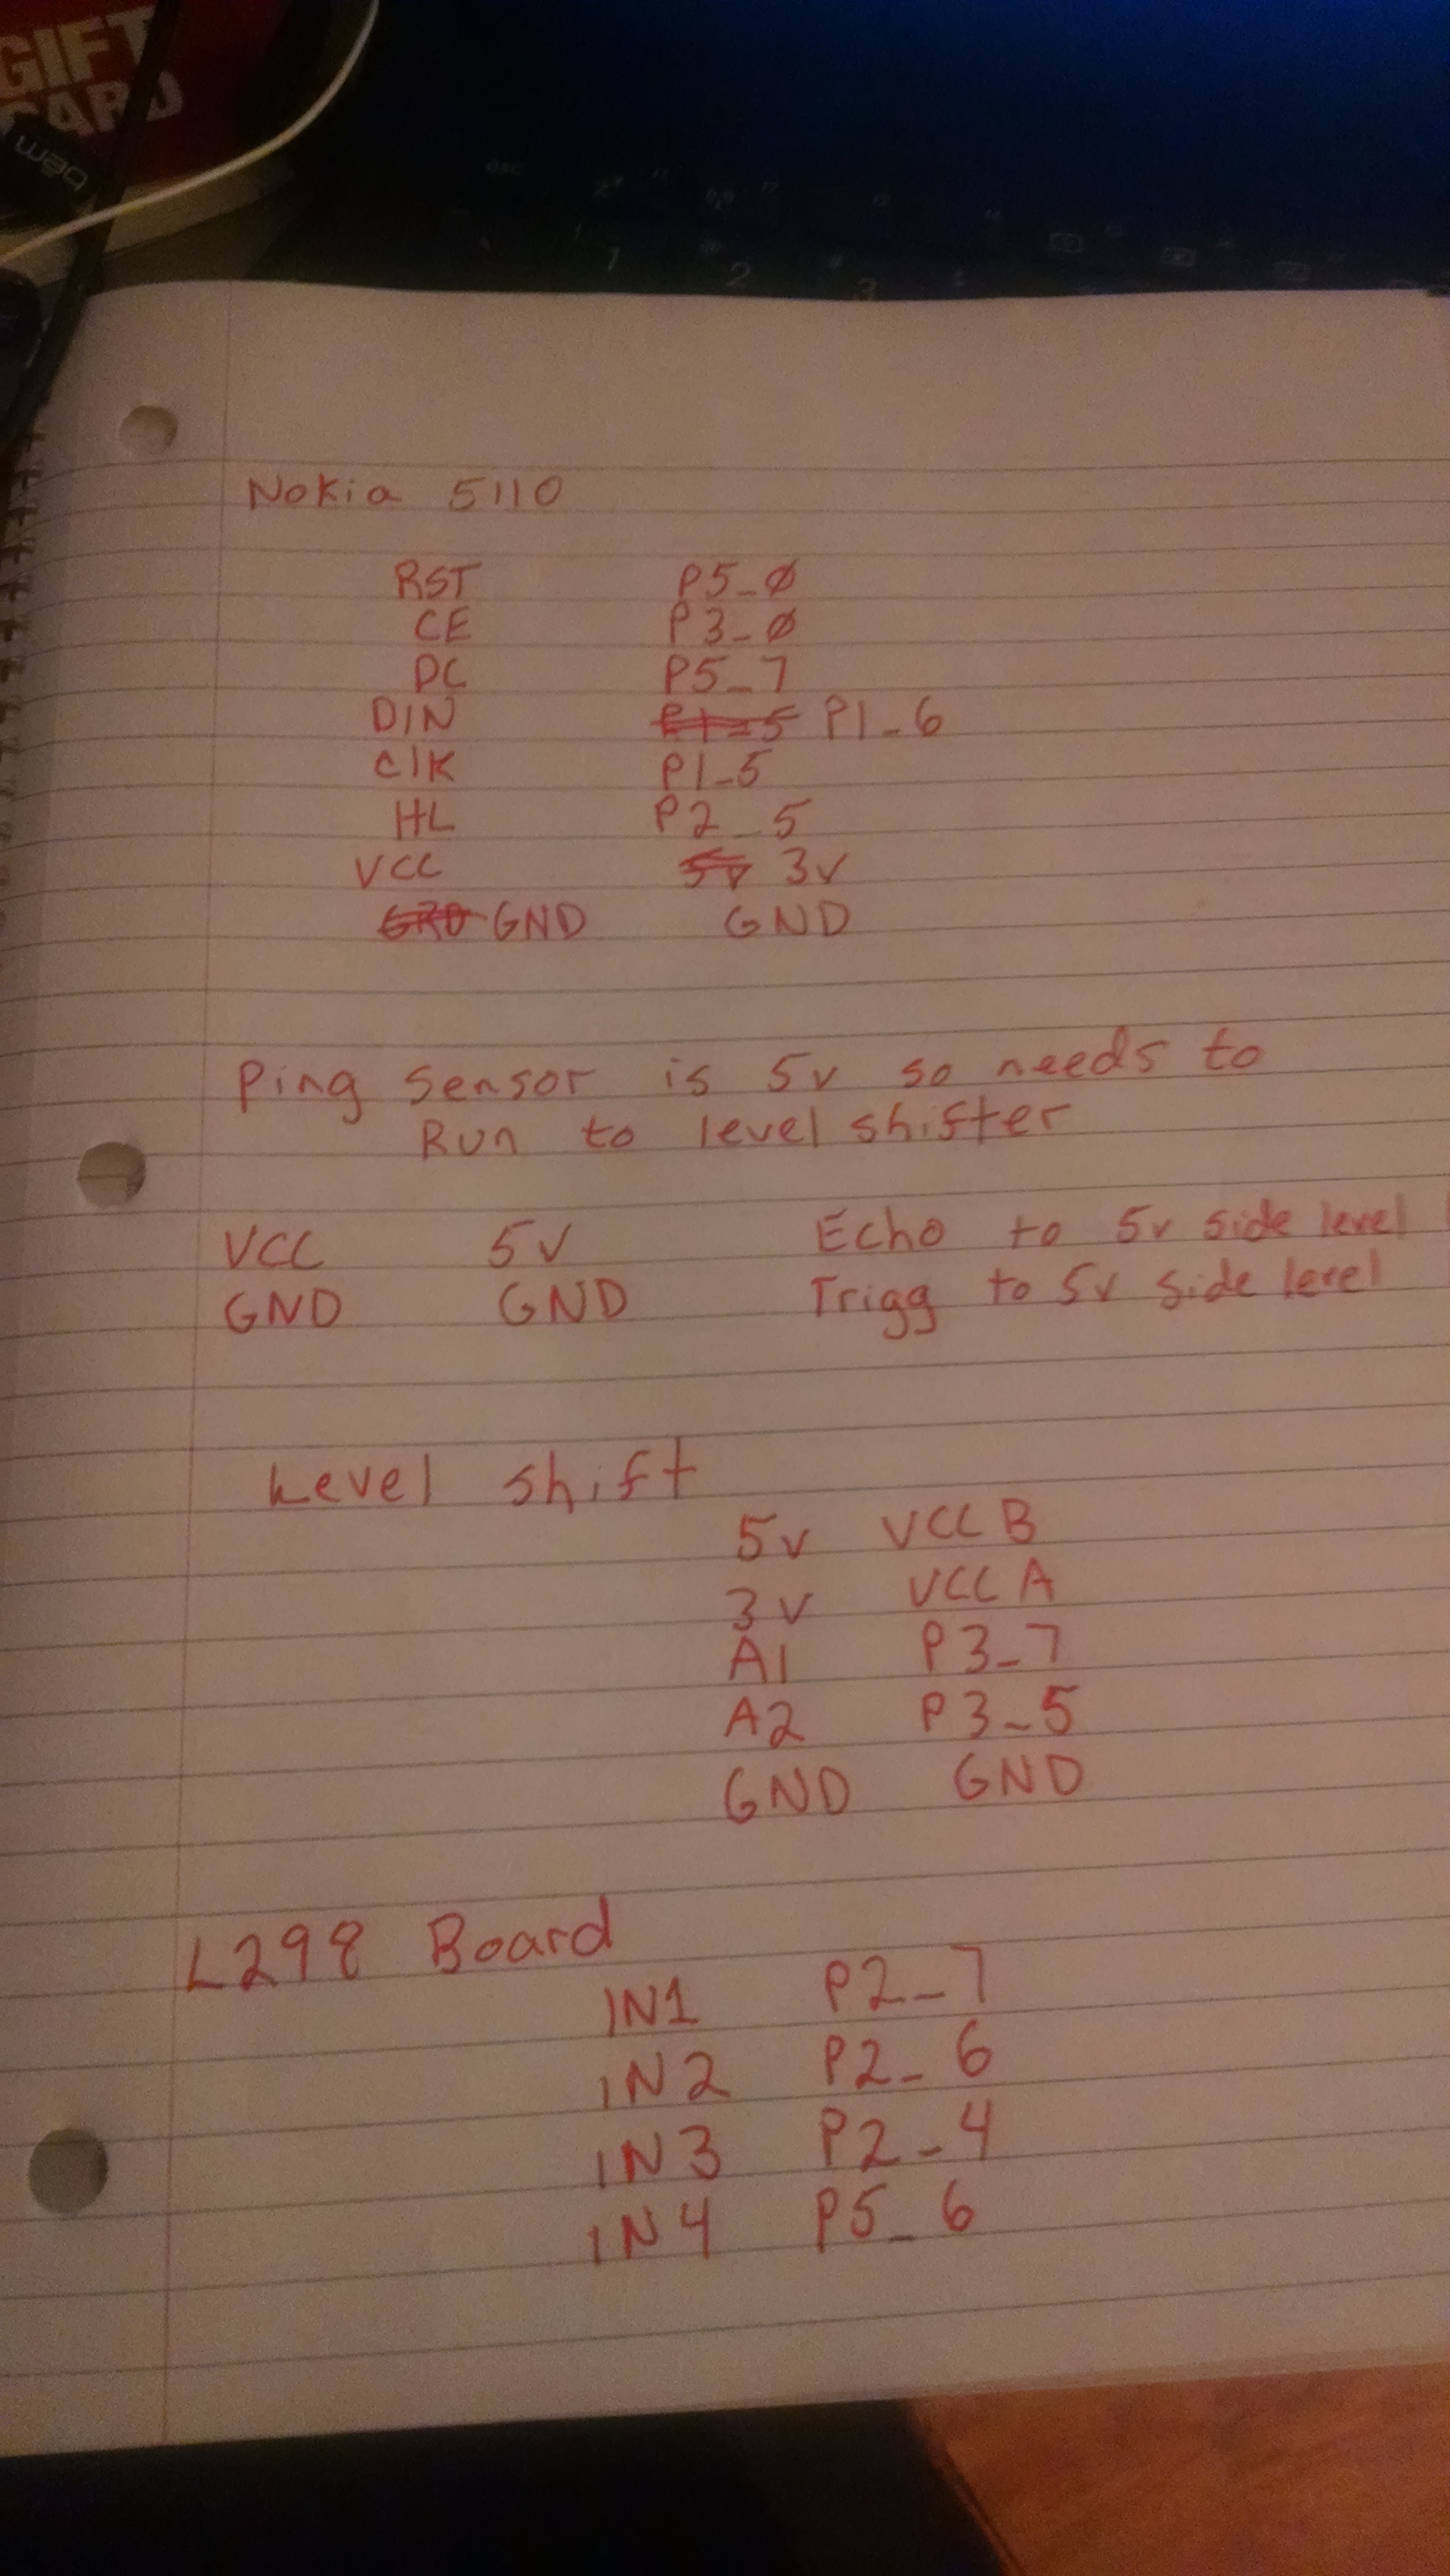 GIFT
CARD
bem
Nokia 5110
RST P5_0
CE P3_0
DC P5_7
DIN P1_5 P1_6
ClK P1_5
HL P2_5
VCC 5v 3v
GRD GND GND
Ping Sensor is 5v so needs to
Run to level shifter
VCC 5v Echo to 5v side level
GND GND Trigg to 5v side level
Level shift
5v VCC B
3v VCC A
A1 P3_7
A2 P3_5
GND GND
L298 Board
IN1 P2_7
IN2 P2_6
IN3 P2_4
IN4 P5_6